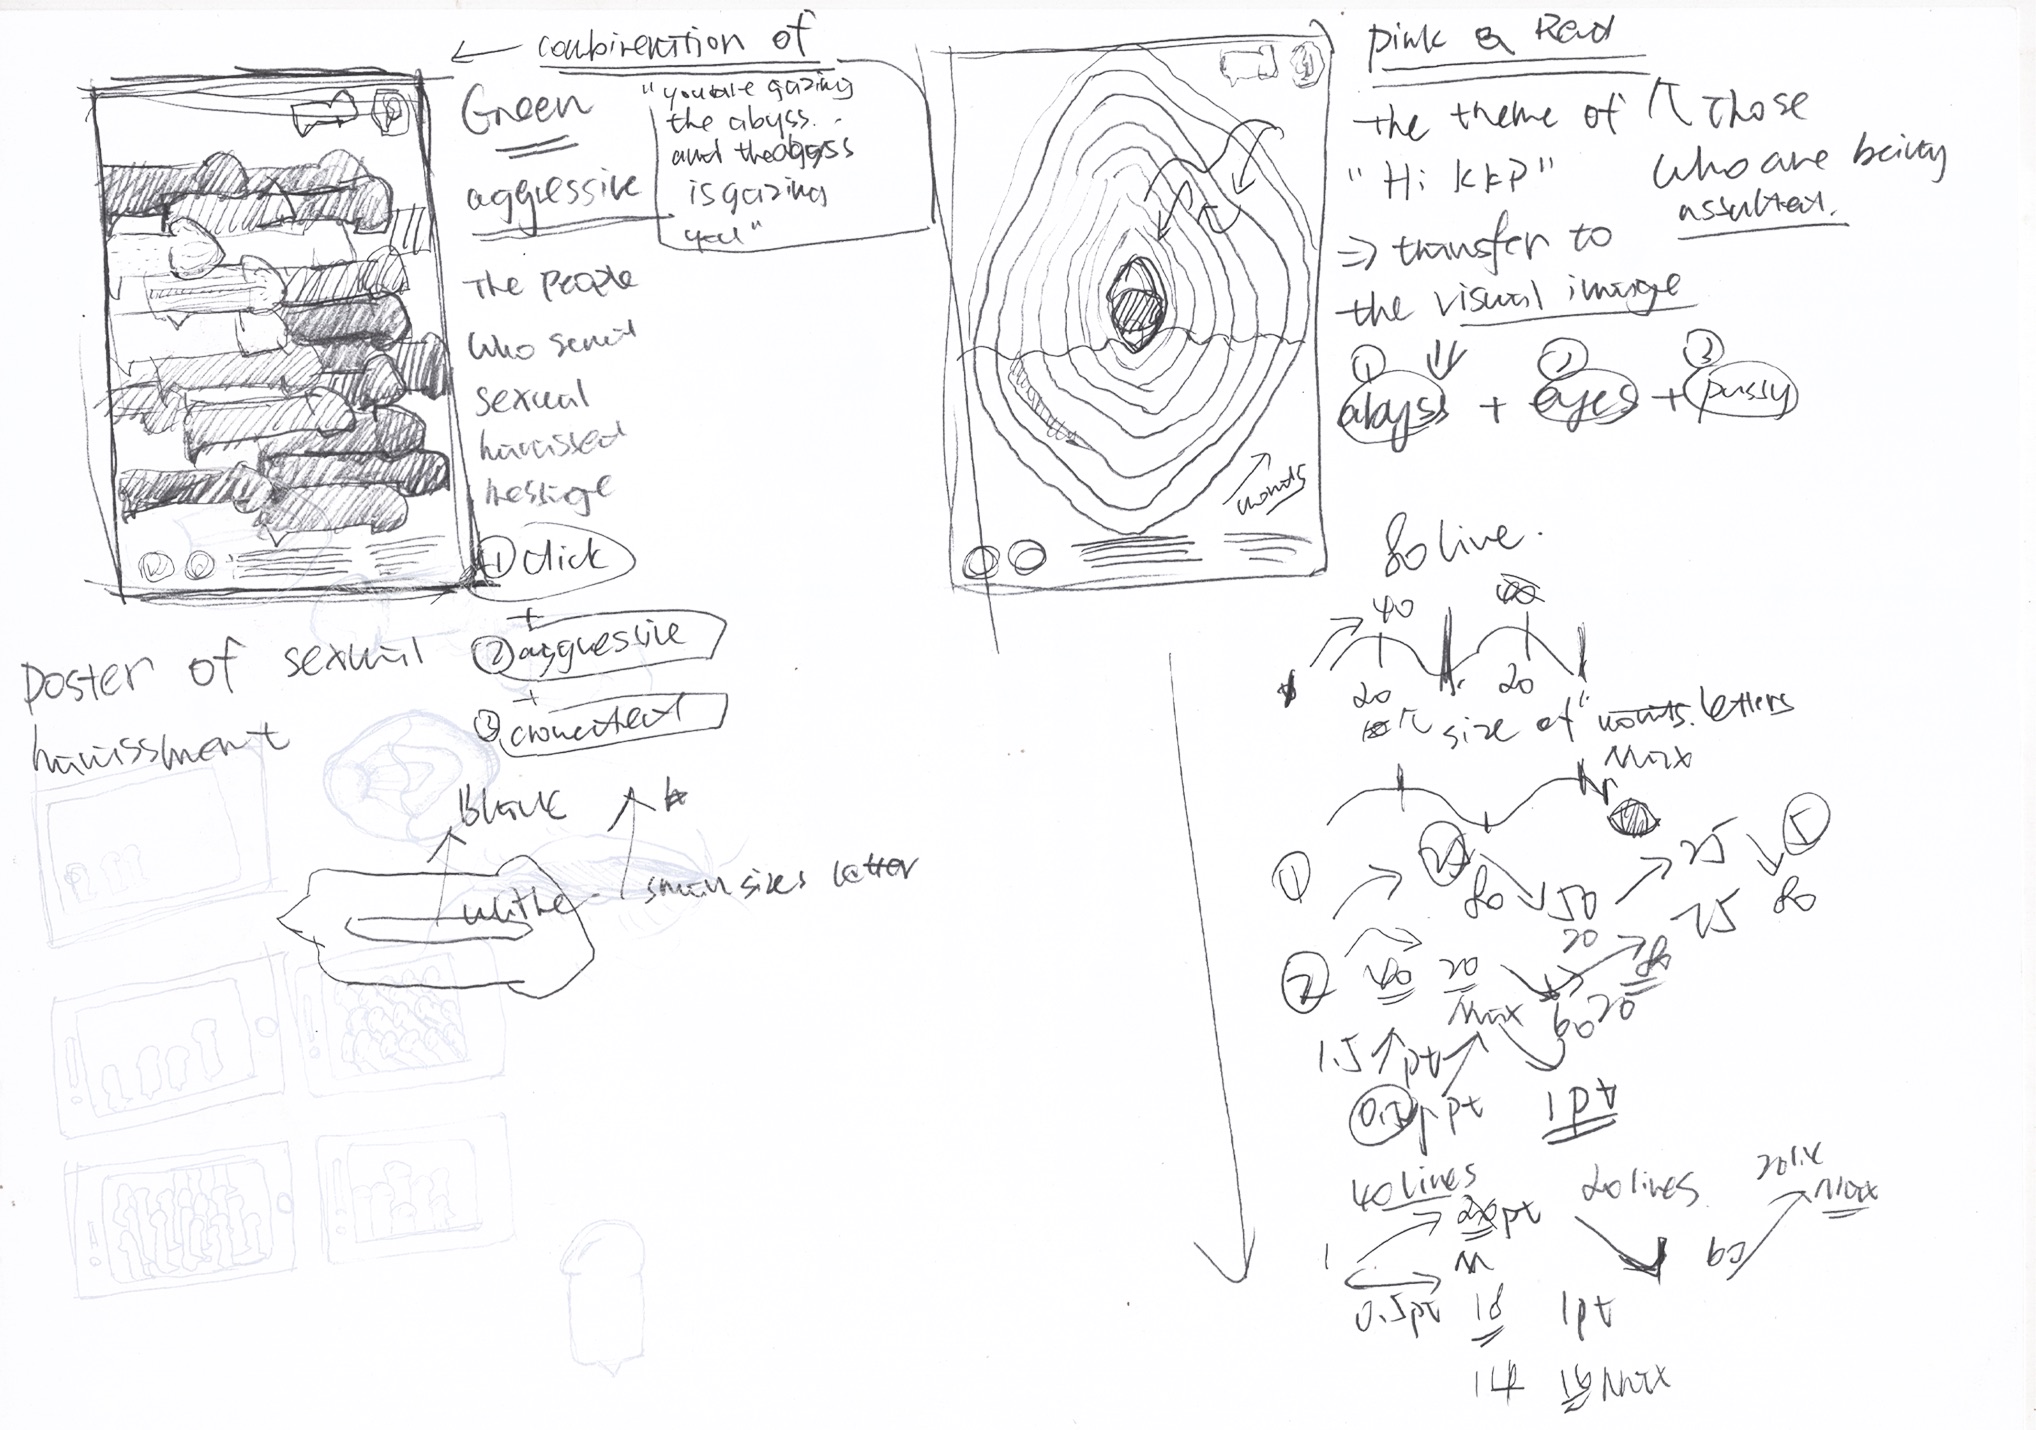 ← combineration of
Green
aggressive
"you are gazing
the abyss..
and the abyss
is gazing
you"
The people
who send
sexual
harissed
message
① click
+
② aggressive
+
③
poster of sexual
harissment
Blank
white
small sizes letter
pink & Red
the theme of
"Hi KKP"
⇒ transfer to
the visual image
↑ Those
who are being
assulted.
① ② ③
abyss + eyes + pussy
words
80 line.
40
20 20
size of letters
Max
①
80 50 25 ⑤
75 80
② 40 20
20
Max 60 20
1.5 pt
pt 1pt
40 lines 20 lines
Max
1
60
0.5pt 18 1pt
14 16 Max